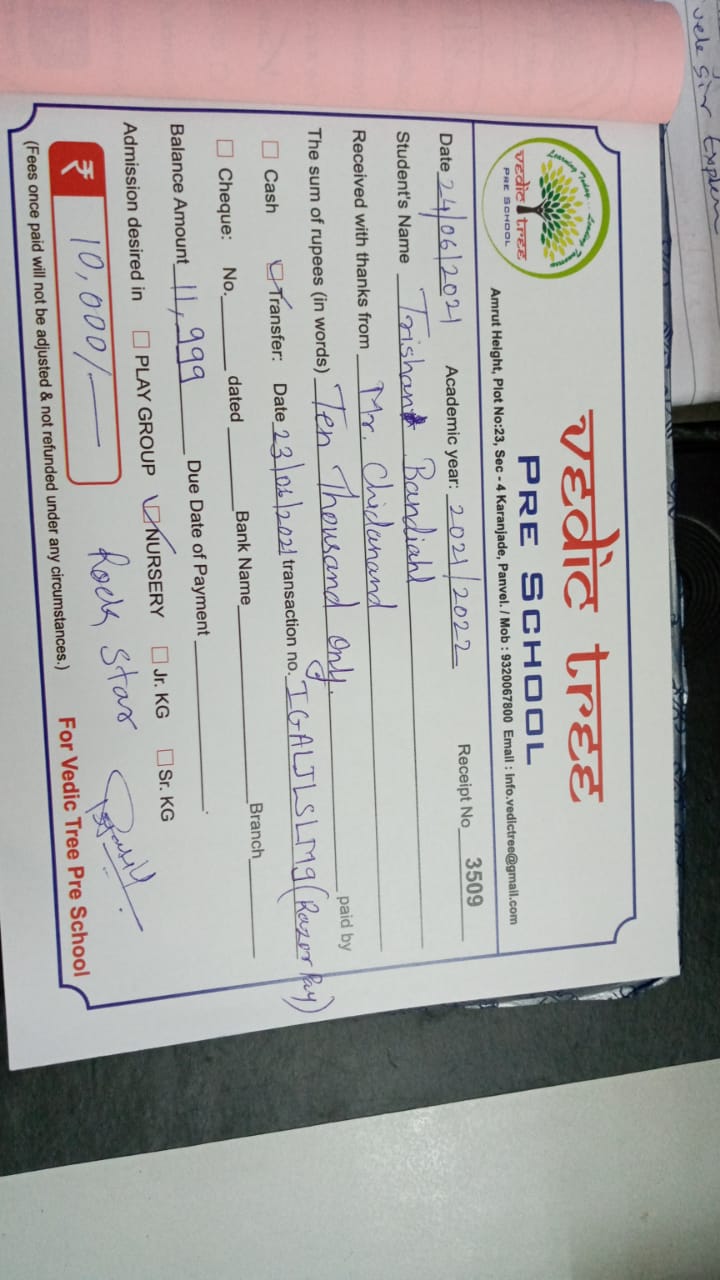 vele sir Explan
Learning Today - Leading Tomorrow
vedic tree
PRE SCHOOL
vedic tree
PRE SCHOOL
Amrut Height, Plot No:23, Sec - 4 Karanjade, Panvel. / Mob : 9320067800 Email : Info.vedictree@gmail.com
Date 24/06/2021 Academic year: 2021/2022 Receipt No 3509
Student's Name Trishan Bandiahl
Received with thanks from Mr. Chidanand
The sum of rupees (in words) Ten Thousand Only. paid by
Cash Transfer: Date 23/06/2021 transaction no. IGALJLSLM9 (Razor Pay)
Cheque: No. dated Bank Name Branch
Balance Amount 11,999 Due Date of Payment
Admission desired in PLAY GROUP NURSERY Jr. KG Sr. KG
₹ 10,000/- Rock Star
For Vedic Tree Pre School
(Fees once paid will not be adjusted & not refunded under any circumstances.)